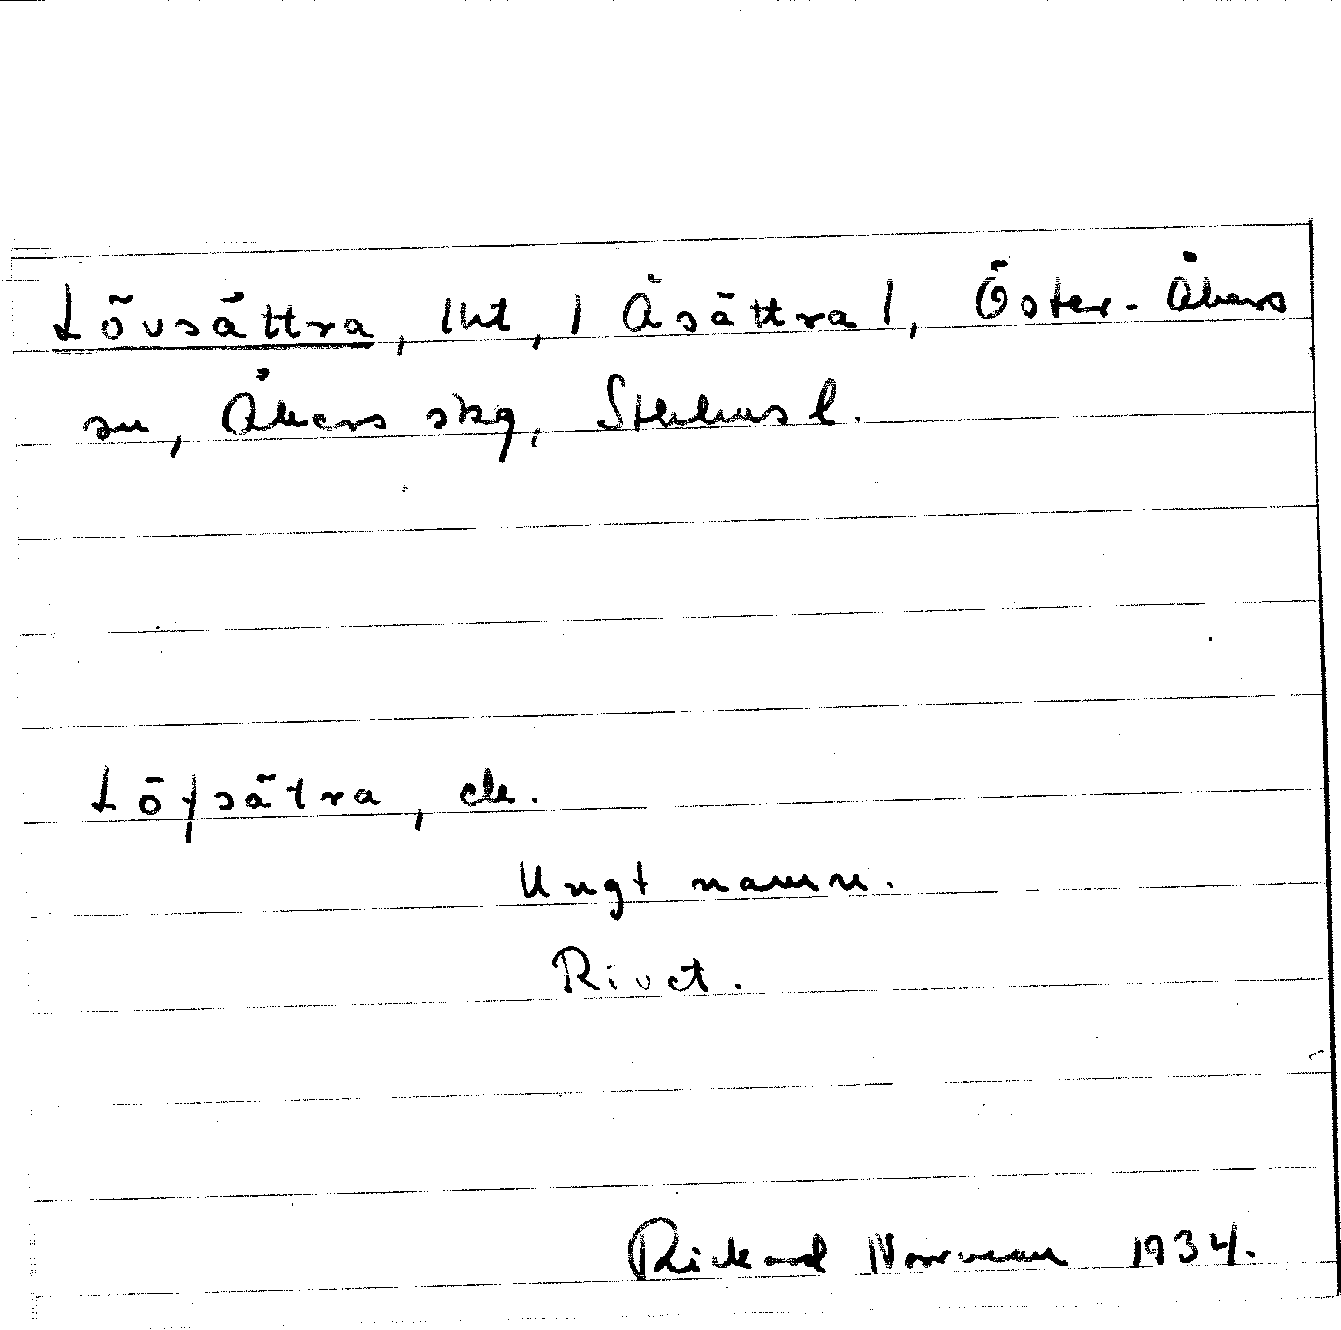 Lövsättra, lht, / Åsättra /, Öster-Åkers
sn, Åkers skg, Sthlms l.
Löfsätra, ek.
Ungt namn.
Rivet.
Rickard Norrman 1934.